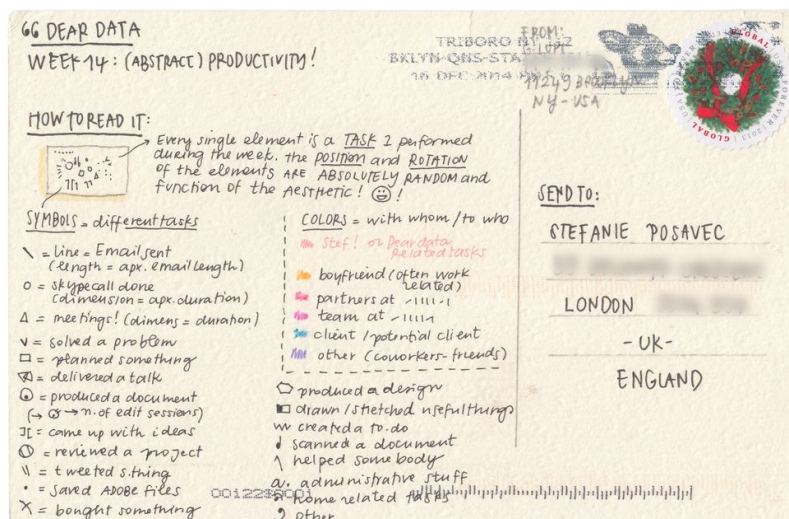 “ DEAR DATA
WEEK 14: (ABSTRACT) PRODUCTIVITY!
TRIBORO NY
BKLYN-QNS-STA
16 DEC 2014
FROM:
G. LUPI
11249 BROOKLYN
NY - USA
GLOBAL USA FOREVER 2013
GLOBAL
HOW TO READ IT:
Every single element is a TASK I performed
during the week. the POSITION and ROTATION
of the elements ARE ABSOLUTELY RANDOM and
function of the AESTHETIC! !
SYMBOLS = different tasks
\ = line = Email sent
(length = apx. email length)
o = skype call done
(dimension = apx. duration)
Δ = meetings! (dimens = duration)
v = solved a problem
□ = planned something
= delivered a talk
⊙ = produced a document
(→ → n. of edit sessions)
][ = came up with ideas
= reviewed a project
\\ = tweeted s.thing
• = saved ADOBE files
X = bought something
COLORS = with whom / to who
Stef! or Dear data
Related tasks
boyfriend (often work
related)
partners at
team at
client / potential client
other (coworkers-friends)
produced a design
drawn / sketched useful things
created a to.do
scanned a document
helped somebody
a. administrative stuff
home related tasks
? other
SEND TO:
STEFANIE POSAVEC
LONDON
-UK-
ENGLAND